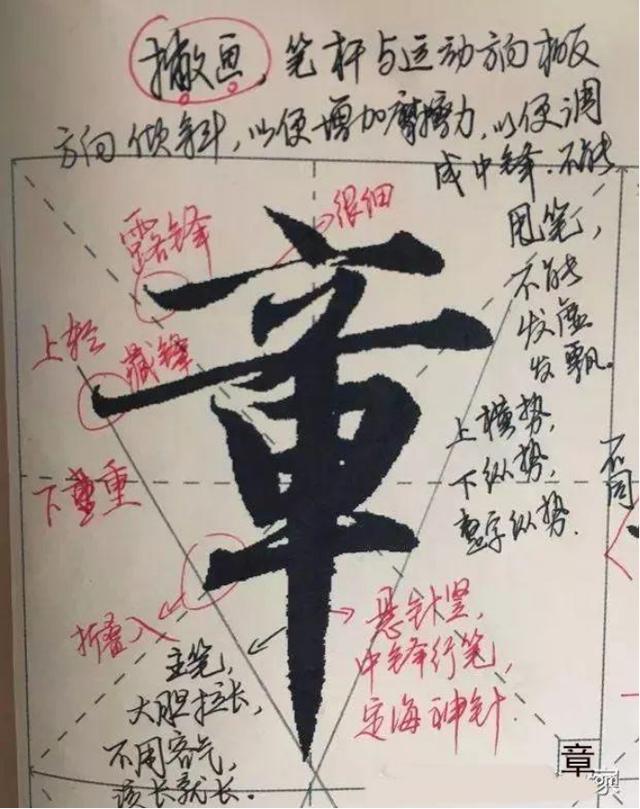 撇画，笔杆与运动方向相反
方向倾斜，以便增加摩擦力，以便调
成中锋.不能
甩笔，
不能
发虚
发飘。
很细
露锋
上轻
藏锋
章
上横势，
下纵势，
整字纵势.
不同
下重
折叠入
悬针竖，
中锋行笔，
定海神针.
主笔，
大胆拉长，
不用客气，
该长就长.
章